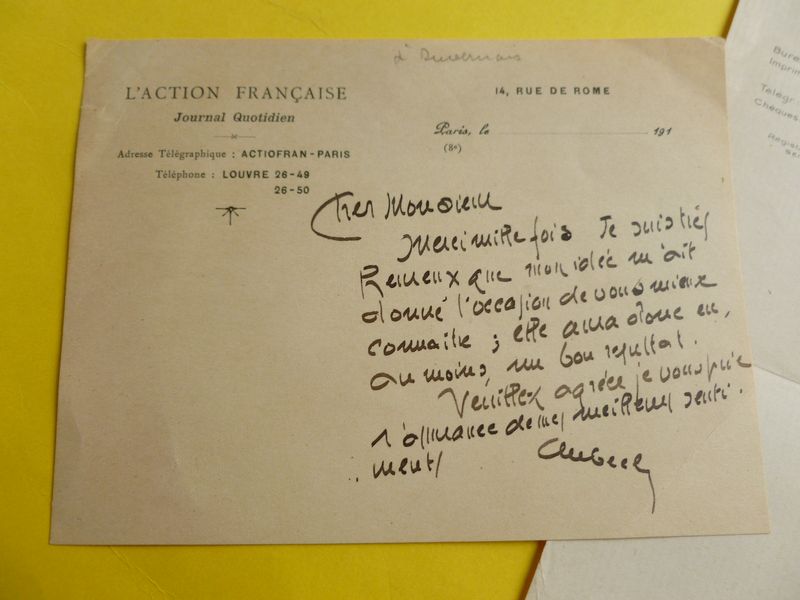 L'ACTION FRANÇAISE
Journal Quotidien
Adresse Télégraphique : ACTIOFRAN-PARIS
Téléphone : LOUVRE 26-49
26-50
14, RUE DE ROME
Paris, le 191
(8e)
Cher Monsieur
Merci mille fois Je suis très
heureux que mon idée m'ait
donné l'occasion de vous mieux
connaître ; elle aura donc eu,
au moins, un bon résultat.
Veuillez agréer je vous prie
l'assurance de mes meilleurs senti-
ments
Bure
Imprim
Télégr
Chèques
Regis
Se